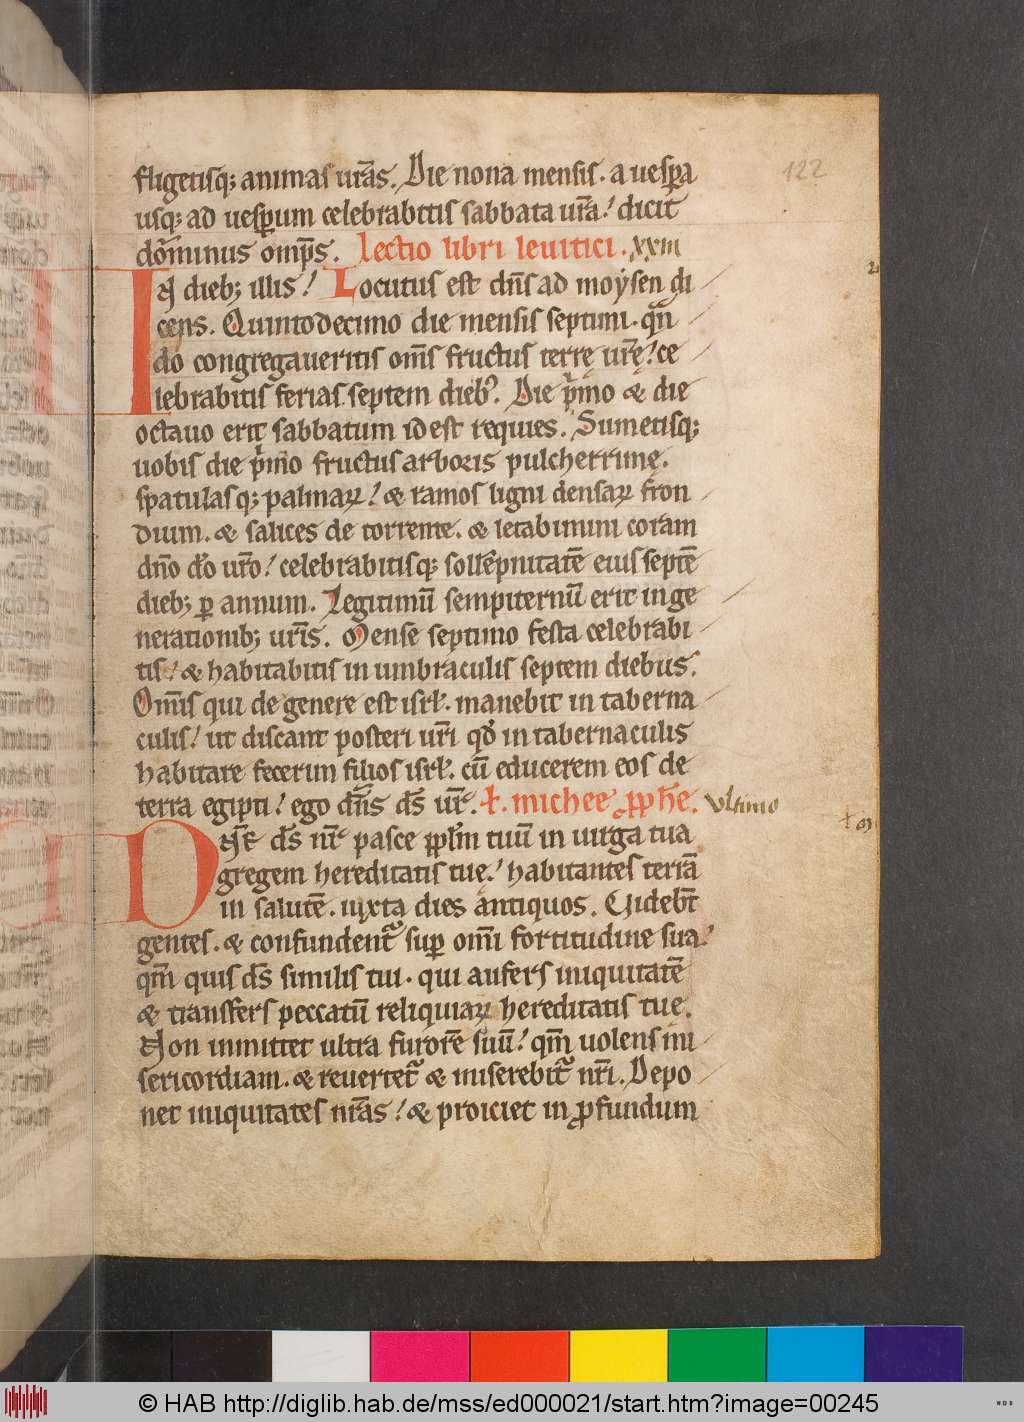 122
fligetisq; animas ur̄as. Die nona mensis. a uesꝑa
usq; ad uesꝑum celebrabitis sabbata ur̄a. dicit
dōminus omp̄s. Lectio libri leuitici. xxiii
IN dieb; illis! Locutus est dn̄s ad moẏsen di
cens. Quintodecimo die mensis septimi. qn̄
do congregaueritis om̄s fructus terrę ur̄ę! ce
lebrabitis ferias septem diebꝰ. Die pͥmo & die
octauo erit sabbatum id est requies. Sumetisq;
uobis die pͥmo fructus arboris pulcherrimę.
spatulasq; palmaꝝ! & ramos ligni densaꝝ fron
dium. & salices de torrente. & letabimini coram
dn̄o dō ur̄o! celebrabitisq; sollēpnitatē eius septē
dieb; ꝑ annum. Legitimū sempiternū erit in ge
nerationib; ur̄is. Mense septimo festa celebrabi
tis! & habitabitis in umbraculis septem diebus.
Om̄is qui de genere est isrł. manebit in taberna
culis! ut discant posteri ur̄i qđ in tabernaculis
habitare fecerim filios isrł. cū educerem eos de
terra egipti! ego dn̄s ds̄ ur̄. ł. michee ꝓph̄e. Vltimo
DNĒ ds̄ nr̄ pasce pplm̄ tuū in uirga tua
gregem hereditatis tuę! habitantes terrā
in salutē. iuxta dies antiquos. Videbt̄
gentes. & confundent᷑ suꝑ omī fortitudine sua!
qm̄ quis ds̄ similis tui. qui aufers iniquitatē
& transfers peccatū reliquiaꝝ hereditatis tuę.
Non inmittet ultra furorē suū! qm̄ uolens mi
sericordiam. & reuertet᷑ & miserebit᷑ nr̄i. Depo
net iniquitates nr̄as! & proiciet in ꝓfundum
© HAB http://diglib.hab.de/mss/ed000021/start.htm?image=00245